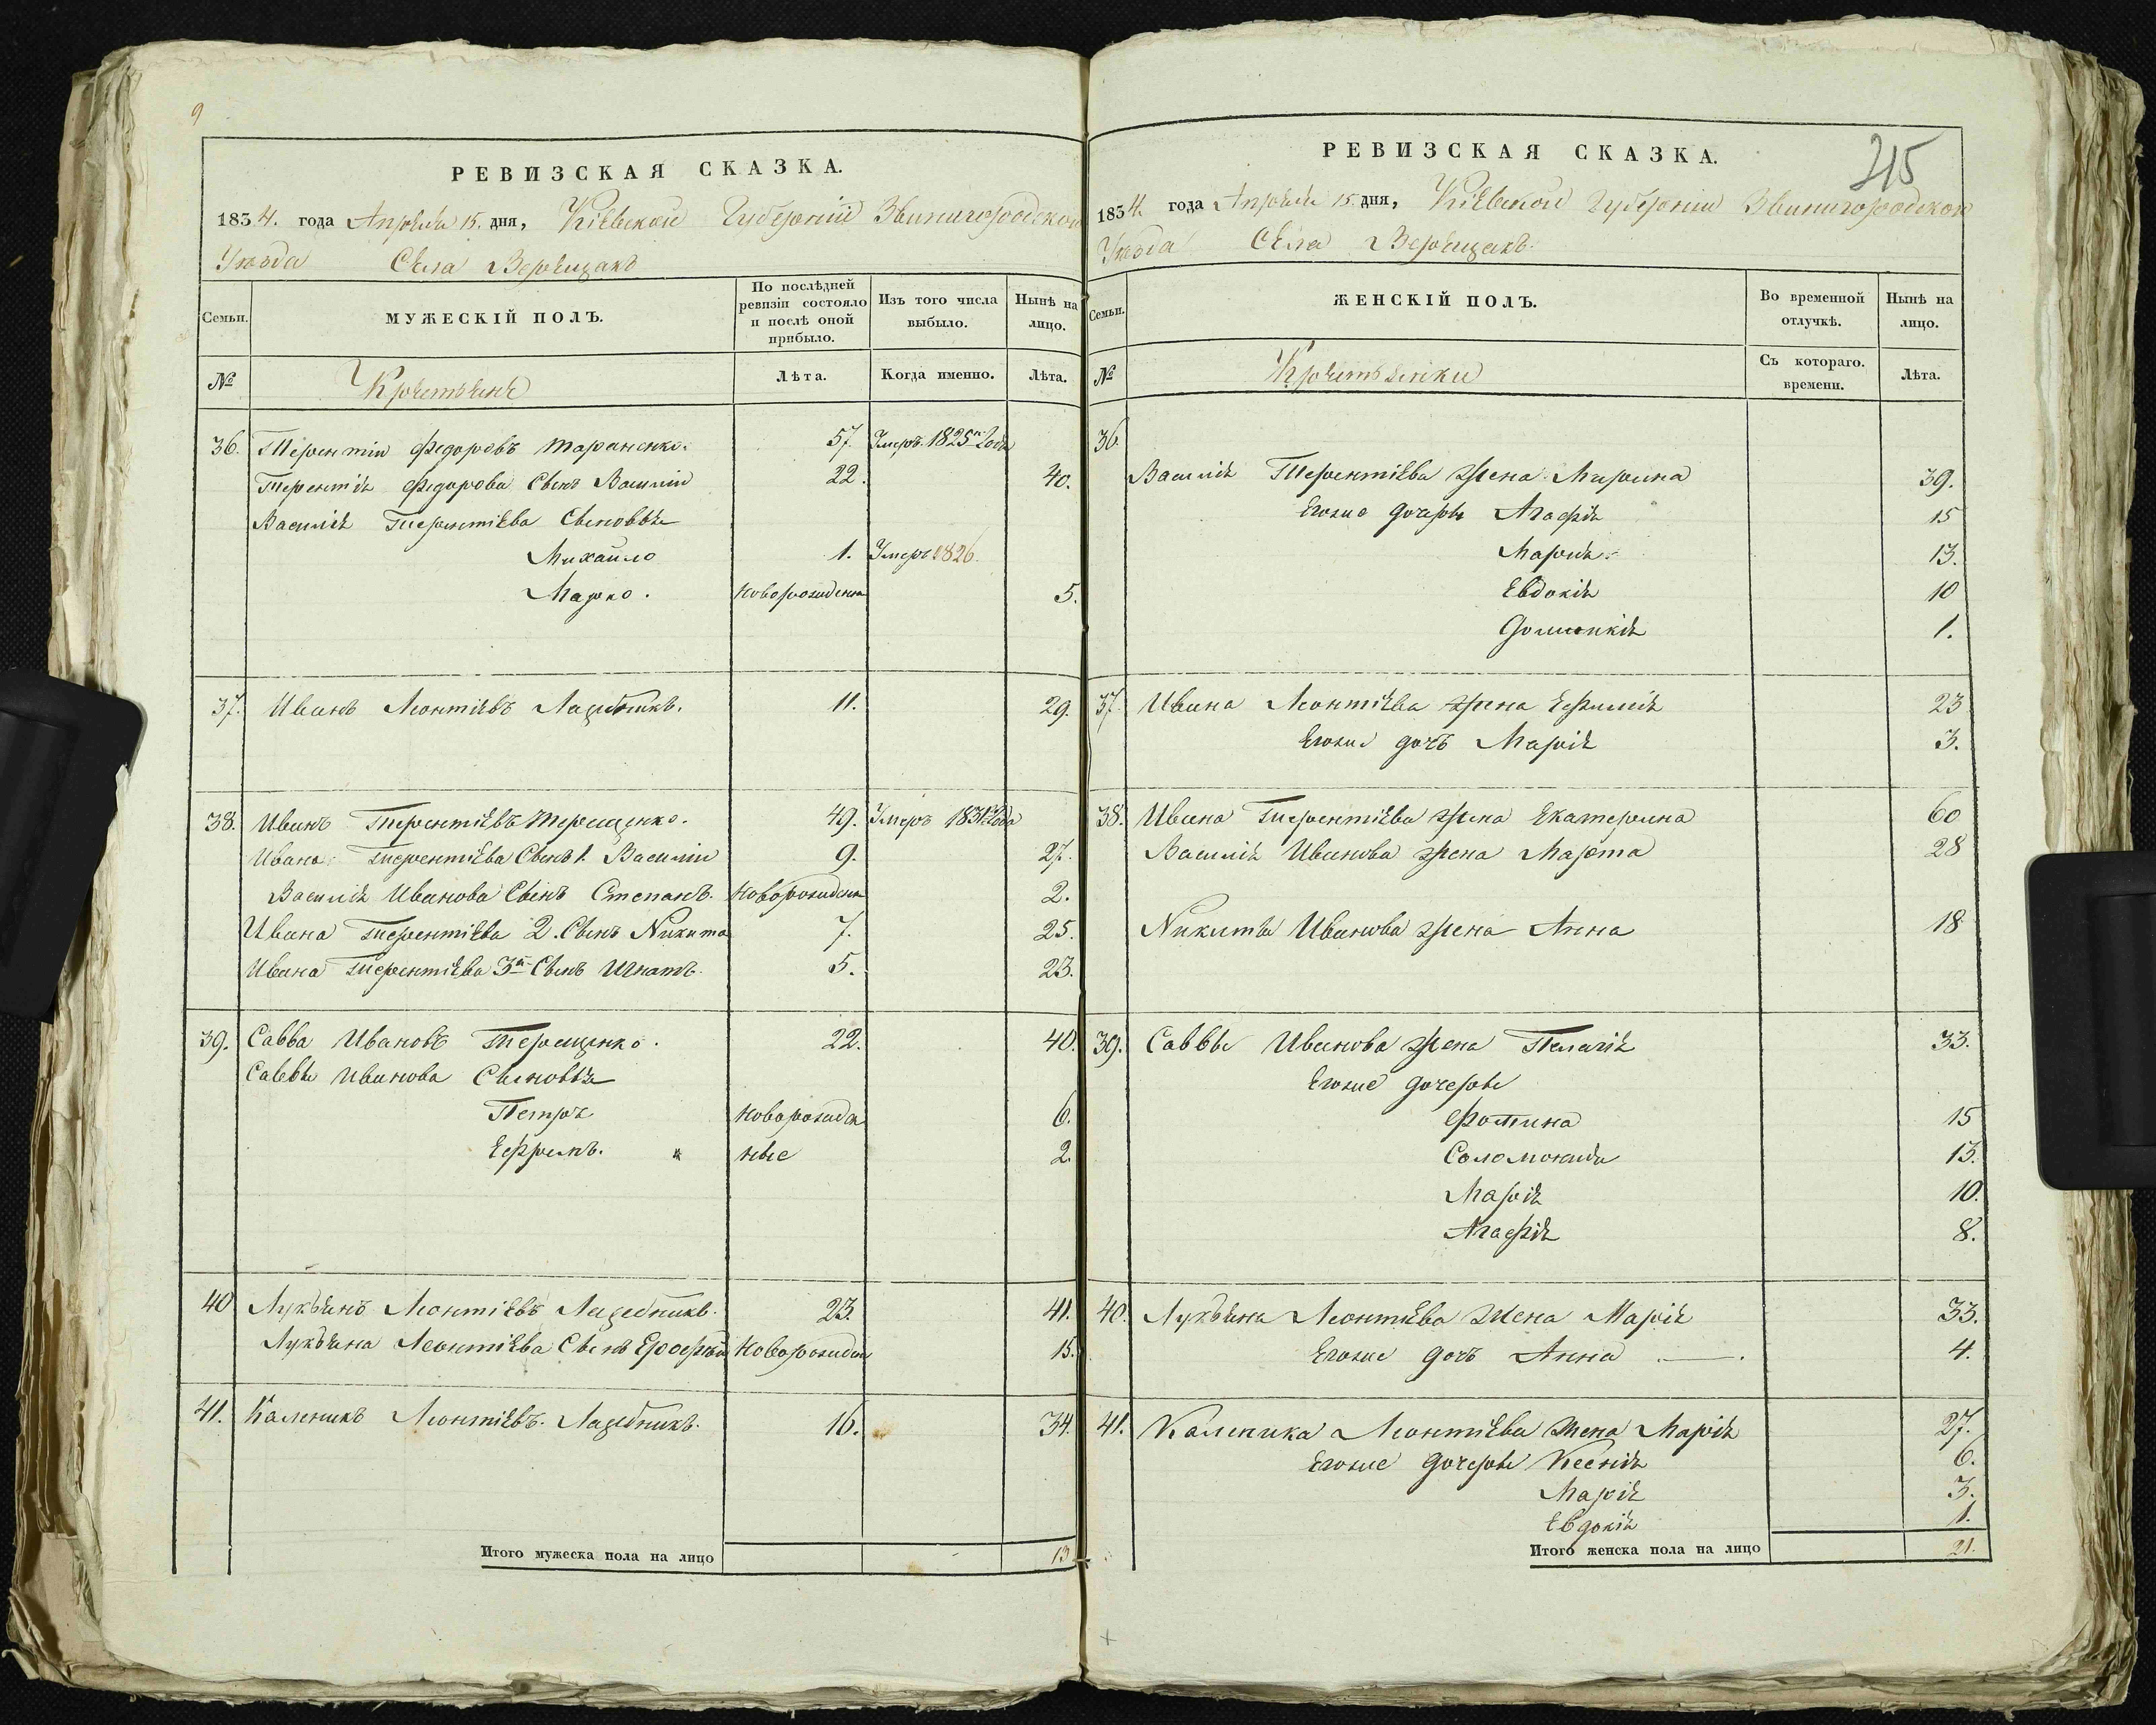 9
РЕВИЗСКАЯ СКАЗКА.
1834. года Апреля 15. дня, Кіевской Губерніи Звинигородской
Уѣзда Села Верещакъ
Семьи. МУЖЕСКІЙ ПОЛЪ. По послѣдней ревизіи состояло и послѣ оной прибыло. Изъ того числа выбыло. Нынѣ на лицо.
№ Крестьяне Лѣта. Когда именно. Лѣта.
36. Терентій Федоровъ Тараненко. 57. Умеръ 1825го Года
Терентія Федорова Сынъ Василій 22. 40.
Василія Терентіева Сыновья
Михайло 1. Умеръ 1826.
Марко. Новорожденн 5.
37. Иванъ Леонтіевъ Лазебникъ. 11. 29.
38. Иванъ Терентіевъ Терещенко. 49. Умеръ Года
Ивана Терентіева Сынъ 1. Василій 9. 27.
Василія Иванова Сынъ Степанъ. Новорожден 2.
Ивана Терентіева 2. Сынъ Никита 7. 25.
Ивана Терентіева 3й Сынъ Игнатъ. 5. 23.
39. Савва Ивановъ Терещенко. 22. 40.
Саввы Иванова Сыновья
Петръ Новорожден 6.
Ефремъ. ные 2.
40 Лукьянъ Леонтіевъ Лазебникъ. 23. 41.
Лукьяна Леонтіева Сынъ Ерофѣй Новорожден 15.
41. Каленикъ Леонтіевъ. Лазебникъ. 16. 34.
Итого мужеска пола на лицо 13
РЕВИЗСКАЯ СКАЗКА.
215
1834. года Апреля 15. дня, Кіевской Губерніи Звинигородской
Уѣзда Села Верещакъ.
Семьи. ЖЕНСКІЙ ПОЛЪ. Во временной отлучкѣ. Нынѣ на лицо.
№ Крестьянки Съ котораго. времени. Лѣта.
36.
Василія Терентіева жена Марина 39.
Егоже дочери Агафія 15
Марія. 13.
Евдокія 10
Домникія 1.
37. Ивана Леонтіева жена Ефимія 23
Егоже дочь Марія 3.
38. Ивана Терентіева жена Екатерина 60
Василія Иванова жена Марта 28
Никиты Иванова жена Анна 18
39. Саввы Иванова жена Пелагія 33.
Егоже дочеры
Фотина 15
Соломонида 13.
Марія 10.
Агафія 8.
40. Лукьяна Леонтіева жена Марія 33.
Егоже дочь Анна 4.
41. Каленика Леонтіева жена Марія 27.
Егоже дочеры Ксенія 6.
Марія 3.
Евдокія 1.
Итого женска пола на лицо 21.